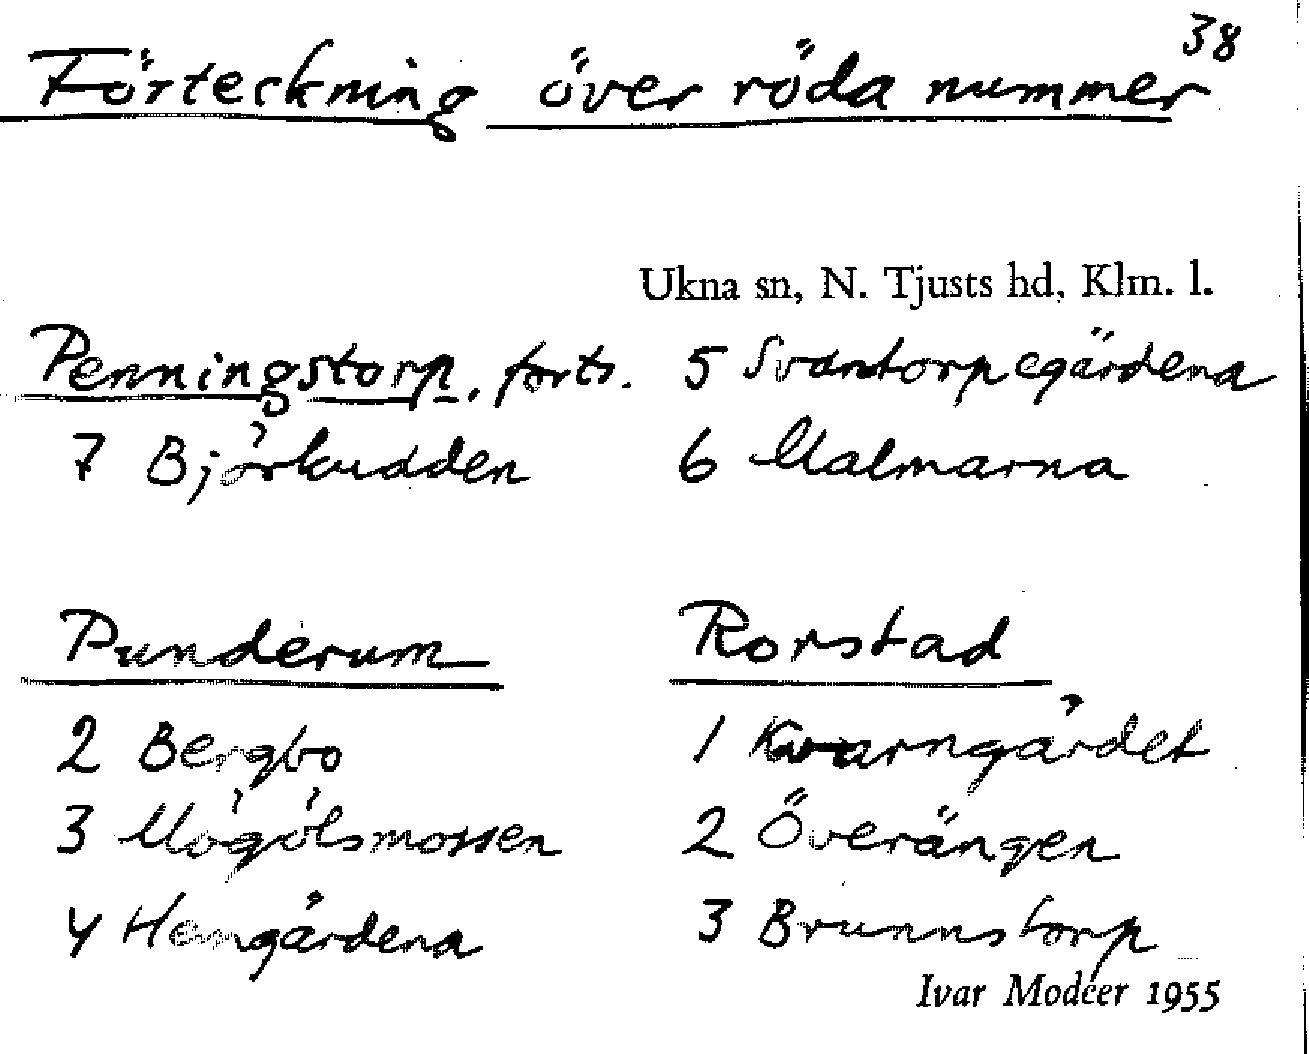 38
Förteckning över röda nummer
Ukna sn, N. Tjusts hd, Klm. l.
Penningstorp, forts.
7 Björkudden
5 Svantorpegärdena
6 Malmarna
Punderum
2 Bergbo
3 Mögölsmossen
4 Hemgärdena
Rorstad
1 Kvarngärdet
2 Överängen
3 Brunnstorp
Ivar Modéer 1955